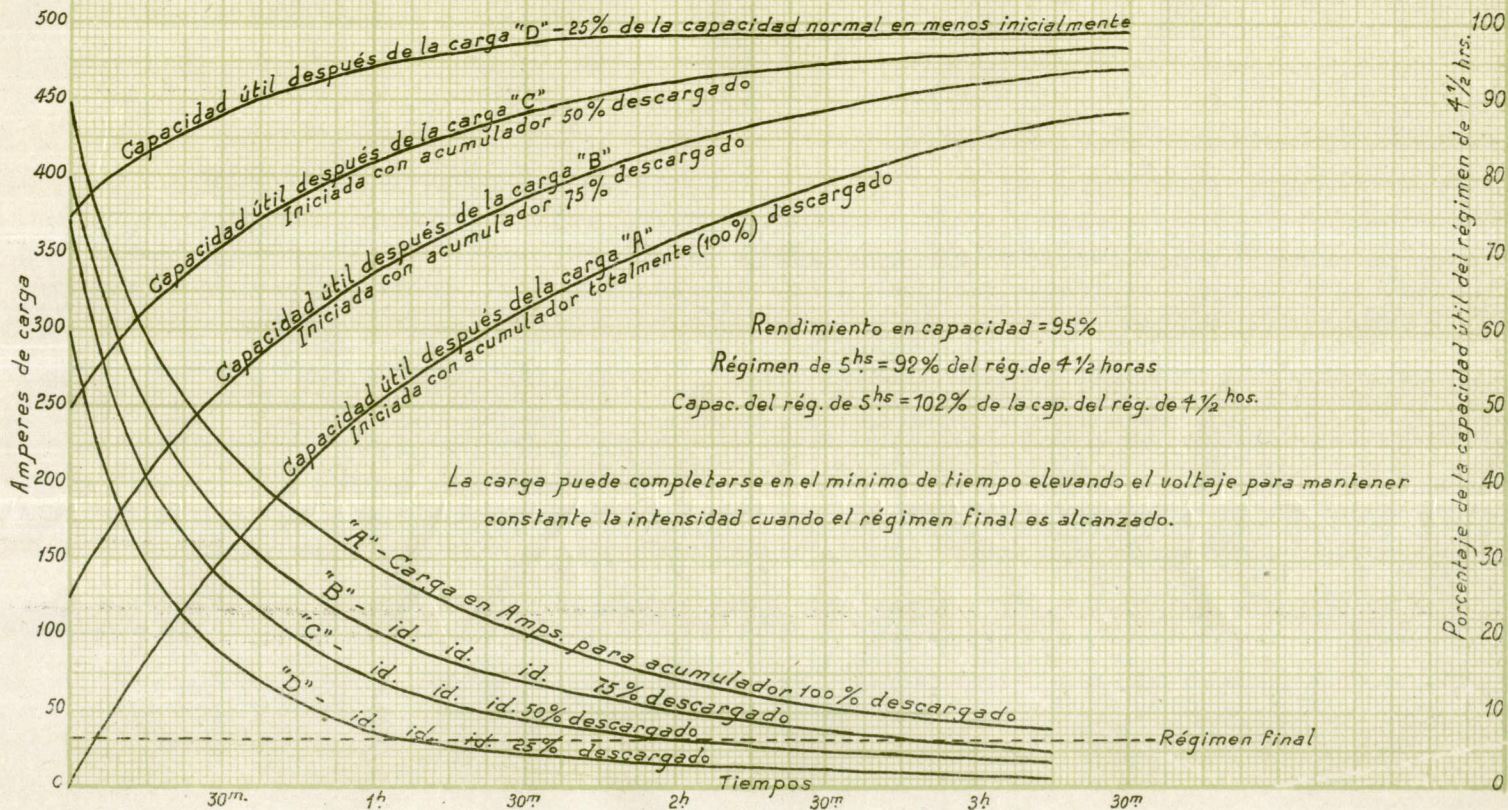 500
450
400
350
300
250
200
150
100
50
0
Amperes de carga
100
90
80
70
60
50
40
30
20
10
0
Porcentaje de la capacidad útil del régimen de 4 1/2 hrs.
Capacidad útil después de la carga "D" - 25% de la capacidad normal en menos inicialmente
Capacidad útil después de la carga "C"
Iniciada con acumulador 50% descargado
Capacidad útil después de la carga "B"
Iniciada con acumulador 75% descargado
Capacidad útil después de la carga "A"
Iniciada con acumulador totalmente (100%) descargado
Rendimiento en capacidad = 95%
Régimen de 5 hs. = 92% del rég. de 4 1/2 horas
Capac. del rég. de 5 hs. = 102% de la cap. del rég. de 4 1/2 hos.
La carga puede completarse en el mínimo de tiempo elevando el voltaje para mantener
constante la intensidad cuando el régimen final es alcanzado.
"A" - Carga en Amps. para acumulador 100% descargado
"B" - id. id. id. 75% descargado
"C" - id. id. id. 50% descargado
"D" - id. id. id. 25% descargado
Régimen final
Tiempos
30m. 1h. 30m 2h 30m 3h 30m